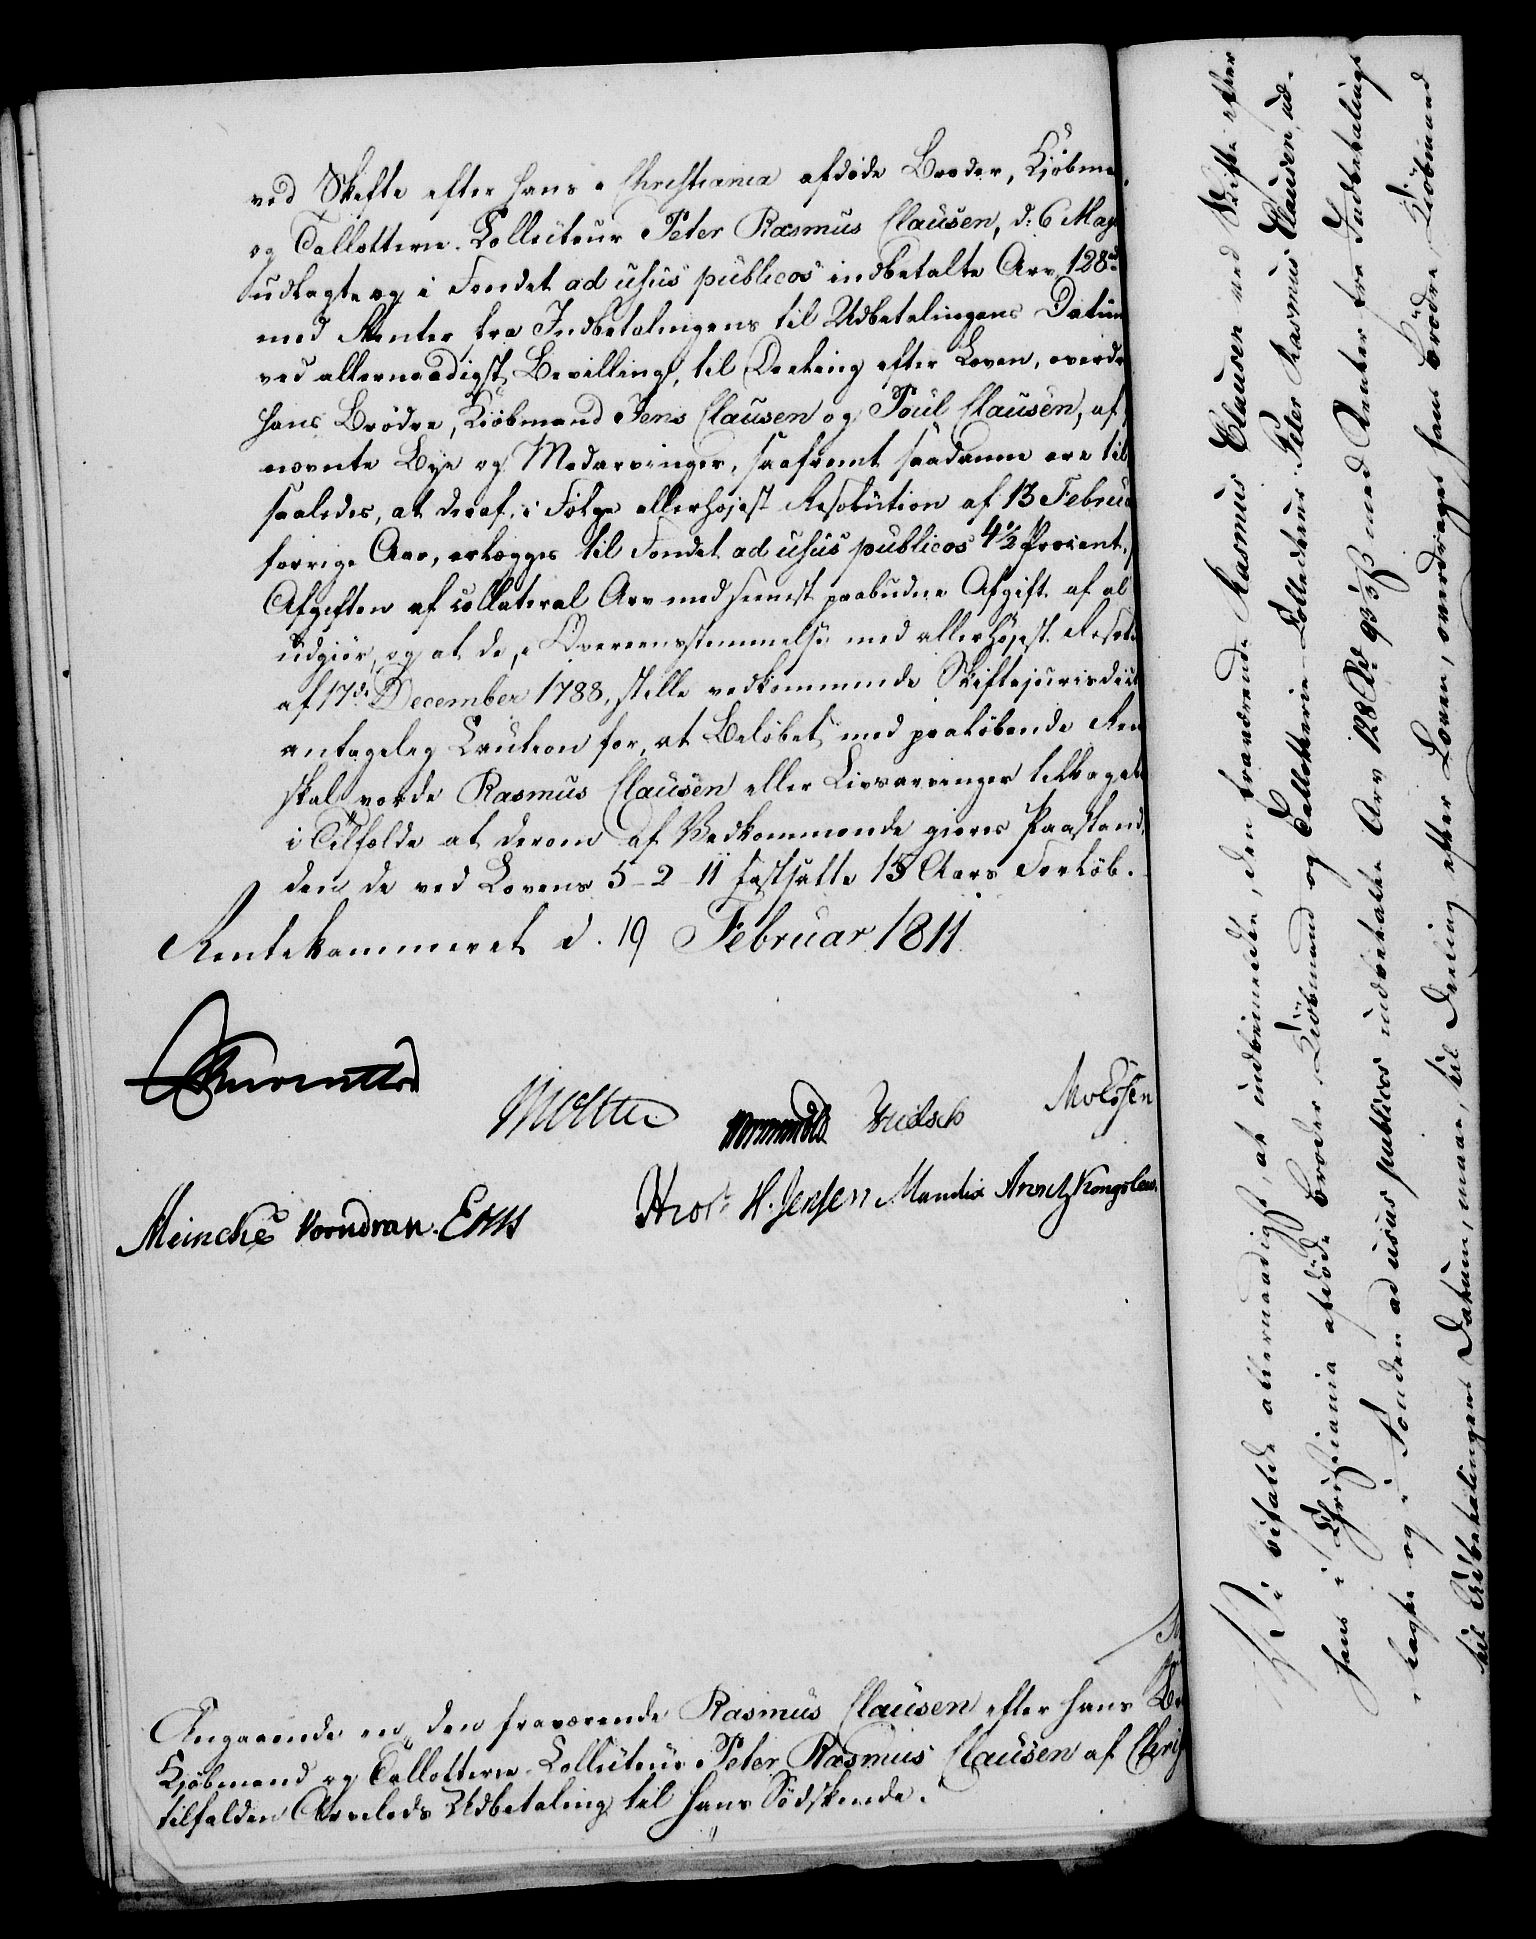 ved Skifte efter hans i Christiania afdøde Broder, Kjøbm
og Tallotterie-Collecteur Peter Rasmus Clausen, d: 6 May
udlagte og i Fondet ad usus publicos indbetalte Arv 128
med Renter fra Indbetalingens til Udbetalingens Datum
ved allernaadigst Bevilling, til Deeling efter Loven, overdr
hans Brødre, Kiøbmand Jens Clausen og Poul Clausen, af
nævnte Bye og Medarvinger, saafremt saadanne ere til
saaledes, at deraf, i Følge allerhøjest Resolution af 13 Februa
forrige Aar, erlægges til Fondet ad usus publicos 4½ Procent,
Afgiften af collateral Arv med senest paabudne Afgift af al
udgiør, og at de, i Overeensstemmelse med allerhøjest Resol
af 17de December 1788, stille vedkommende Skiftejurisdict
antagelig Caution for, at Beløbet med paaløbende Ren
skal vorde Rasmus Clausen eller Livsarvinger tilbage
i Tilfælde at derom af Vedkommende giøres Paastand,
den de ved Lovens 5-2-11 fastsatte 15 Aars Forløb.
Rentekammeret d. 19 Februar 1811
Meincke Vorndran.
H. Jensen Mandix
Angaaende en, den fraværende Rasmus Clausen efter hans Br
Kjøbmand og Tallotterie-Collecteur Peter Rasmus Clausen af Chri
tilfalden Arvelods Udbetaling til hans Sødskende.
Vi bifalde allernaadigst, at indbemeldte, den fraværende Rasmus Clausen ved Skifte efter
hans i Christiania afdøde Broder, Kiøbmand og Tallotterie-Collecteur Peter Rasmus Clausen, ud-
lagte og i Fonden ad usus publicos indbetalte Arv 128 Rd 93 ß med Renter fra Indbetalings
til Udbetalingens Datum, maae, til Deeling efter Loven, overdrages hans Brødre, Kiøbmand